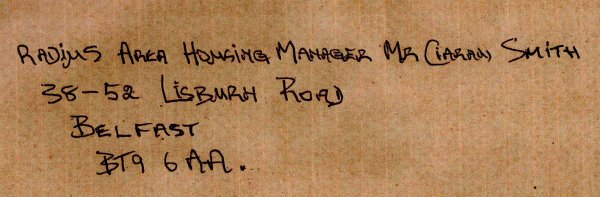 Radius Area Housing Manager Mr Ciaran Smith
38-52 Lisburn Road
Belfast
BT9 6AA.